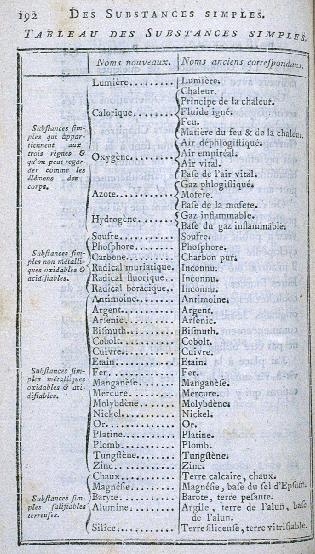 192 DES SUBSTANCES SIMPLES.
TABLEAU DES SUBSTANCES SIMPLES.
Noms nouveaux. Noms anciens correspondans.
Substances simples qui appartiennent aux trois règnes & qu'on peut regarder comme les élémens des corps.
Lumière......... Lumière.
Calorique.........
Chaleur.
Principe de la chaleur.
Fluide igné.
Feu.
Matière du feu & de la chaleur.
Oxygène.........
Air déphlogistiqué.
Air empiréal.
Air vital.
Base de l'air vital.
Azote.........
Gaz phlogistiqué.
Mofete.
Base de la mofete.
Hydrogène.........
Gaz inflammable.
Base du gaz inflammable.
Substances simples non métalliques oxidables & acidifiables.
Soufre......... Soufre.
Phosphore......... Phosphore.
Carbone......... Charbon pur.
Radical muriatique. Inconnu.
Radical fluorique.. Inconnu.
Radical boracique.. Inconnu.
Substances simples métalliques oxidables & acidifiables.
Antimoine......... Antimoine.
Argent......... Argent.
Arsenic......... Arsenic.
Bismuth......... Bismuth.
Cobolt......... Cobolt.
Cuivre......... Cuivre.
Etain......... Etain.
Fer......... Fer.
Manganèse......... Manganèse.
Mercure......... Mercure.
Molybdène......... Molybdène.
Nickel......... Nickel.
Or......... Or.
Platine......... Platine.
Plomb......... Plomb.
Tungstène......... Tungstène.
Zinc......... Zinc.
Substances simples salifiables terreuses.
Chaux......... Terre calcaire, chaux.
Magnésie......... Magnésie, base du sel d'Epsom.
Baryte......... Barote, terre pesante.
Alumine......... Argile, terre de l'alun, base
de l'alun.
Silice......... Terre siliceuse, terre vitrifiable.